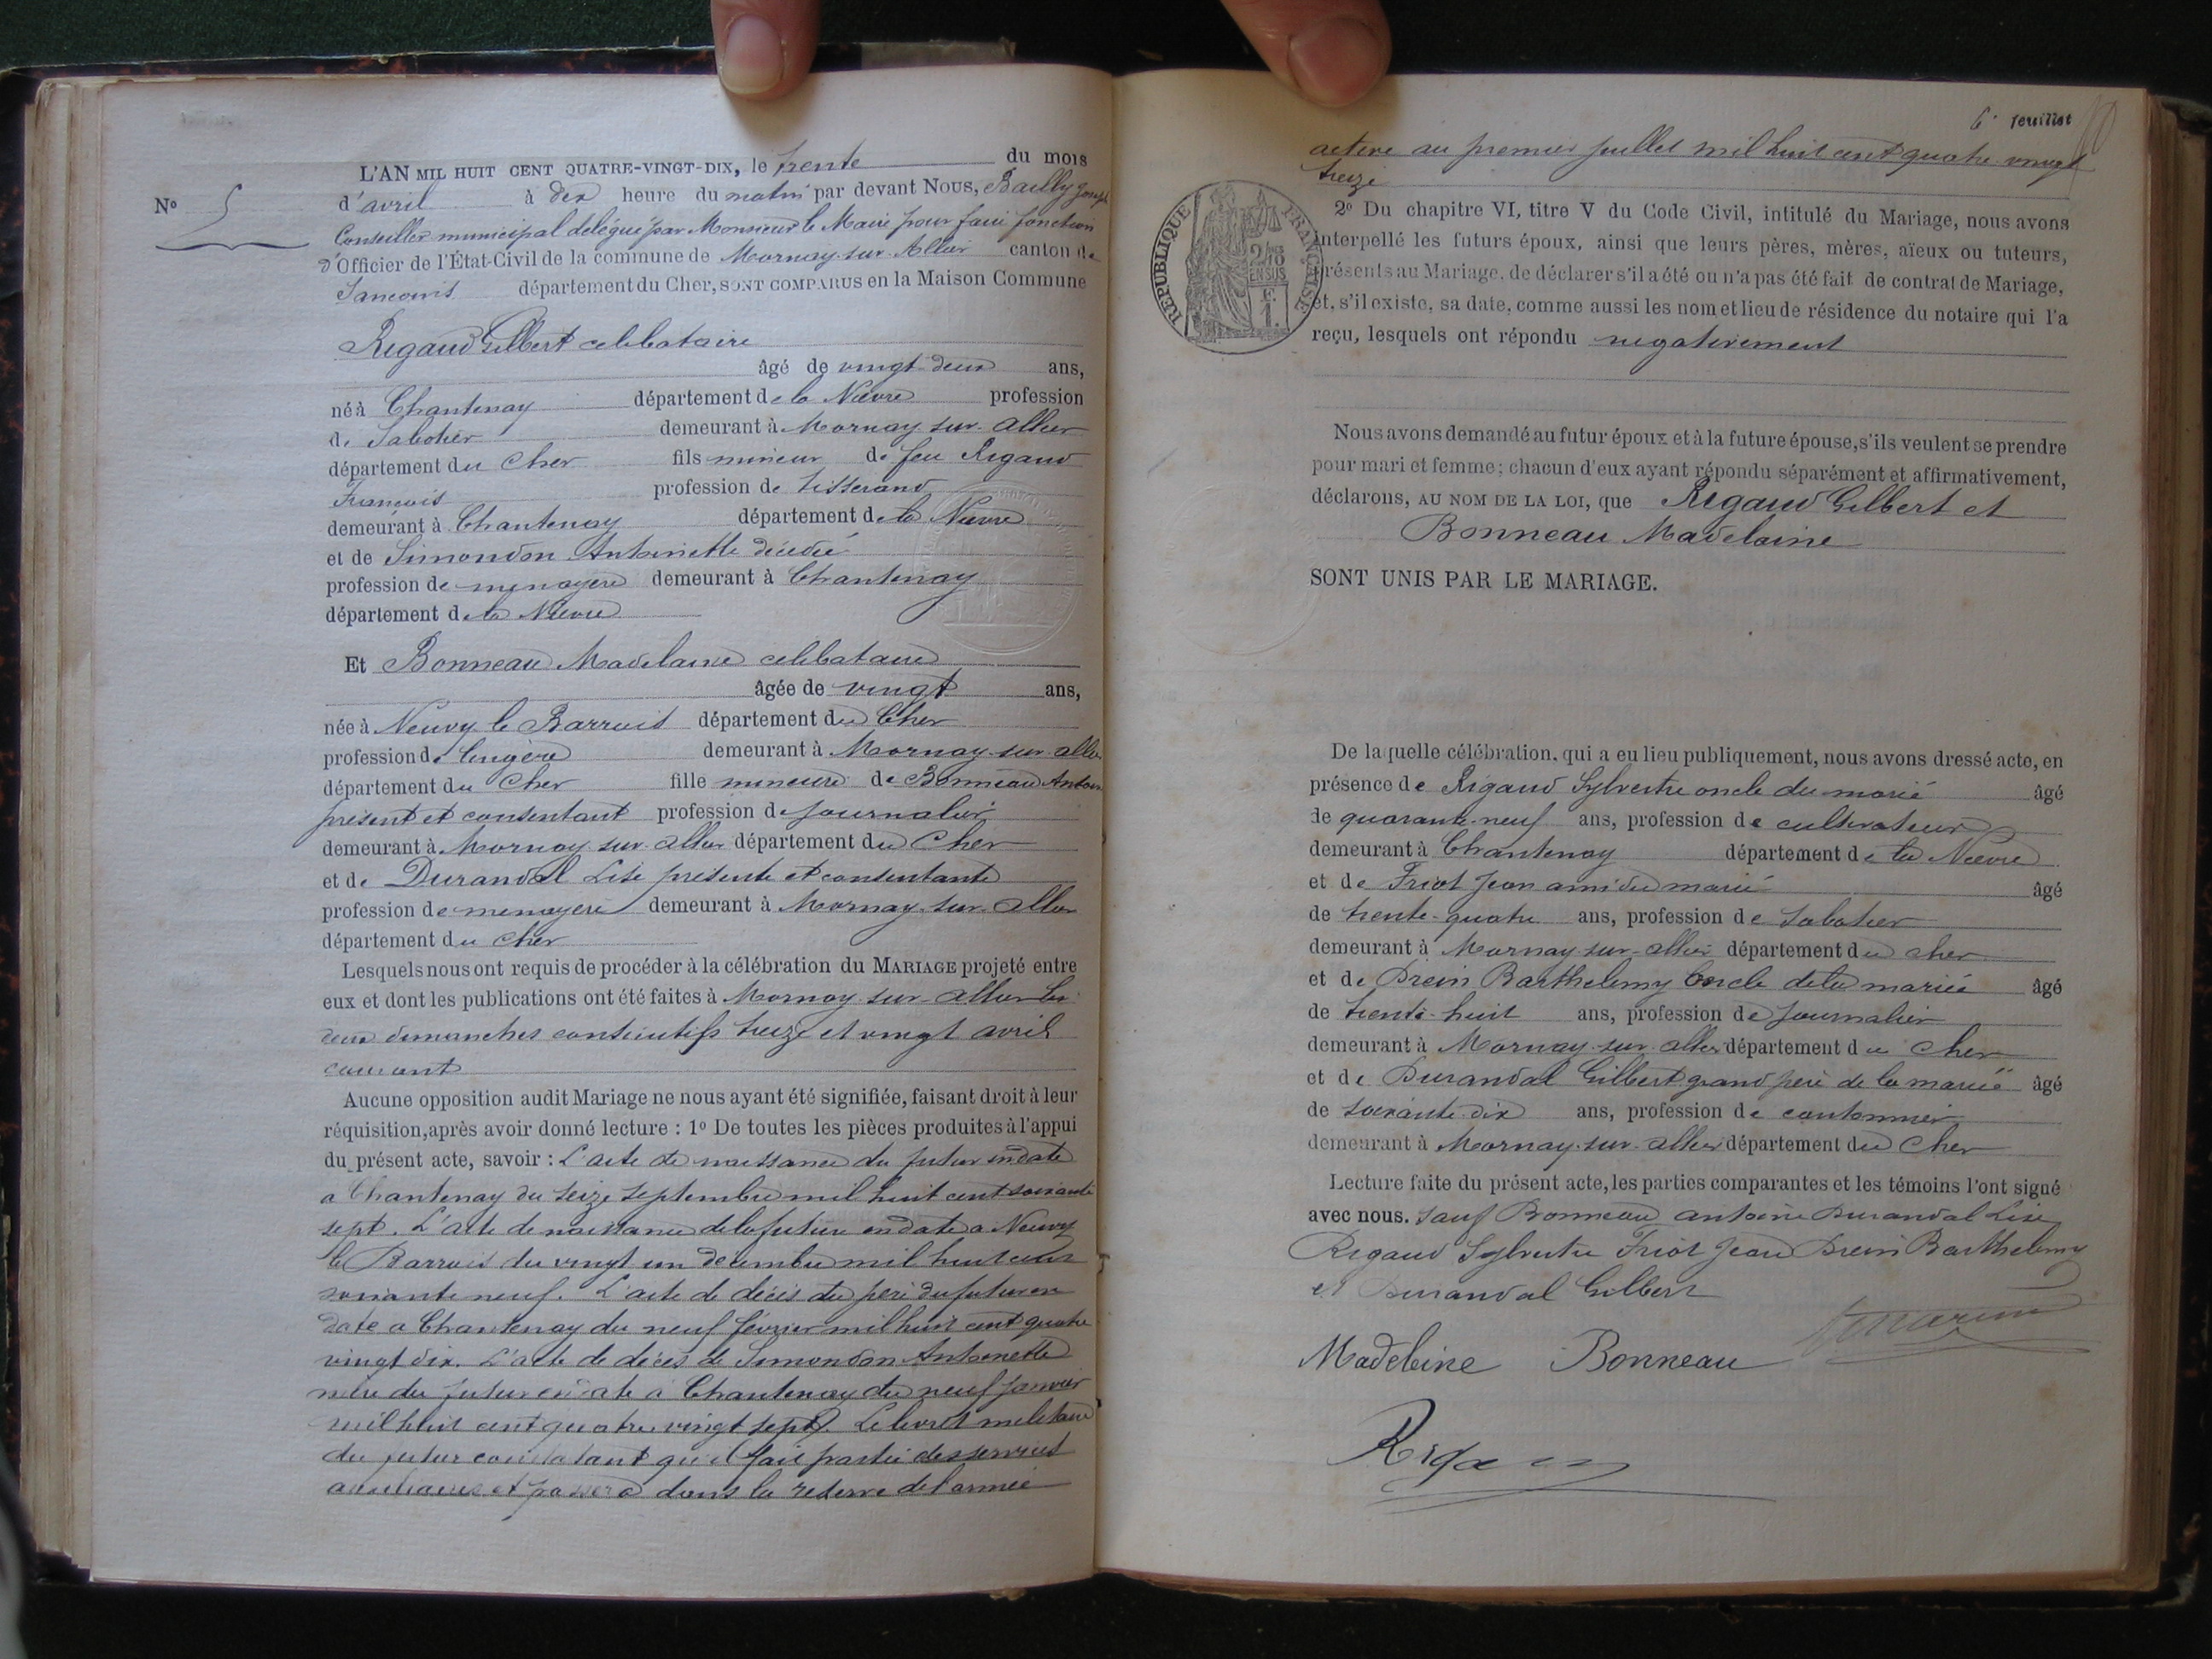 L'AN MIL HUIT CENT QUATRE-VINGT-DIX, le trente du mois
N° 5
d'avril à dix heure du matin par devant Nous, Bailly Joseph
Conseiller municipal délégué par Monsieur le Maire pour faire fonction
d'Officier de l'État-Civil de la commune de Mornay-sur-Allier canton de
Sancoins département du Cher, SONT COMPARUS en la Maison Commune
Rigaud Gilbert celibataire
âgé de vingt deux ans,
né à Chantenay département de la Nièvre profession
de Sabotier demeurant à Mornay-sur-Allier
département du Cher fils mineur de feu Rigaud
François profession de tisserand
demeurant à Chantenay département de la Nièvre
et de Simondon Antoinette décédée
profession de menagère demeurant à Chantenay
département de la Nièvre
Et Bonneau Madelaine celibataire
âgée de vingt ans,
née à Neuvy le Barrois département du Cher
profession de lingère demeurant à Mornay-sur-allier
département du Cher fille mineure de Bonneau Antoine
présent et consentant profession de journalier
demeurant à Mornay-sur-allier département du Cher
et de Durandal Lise présente et consentante
profession de menagère demeurant à Mornay-sur-Allier
département du Cher
Lesquels nous ont requis de procéder à la célébration du MARIAGE projeté entre
eux et dont les publications ont été faites à Mornay-sur-Allier les
deux dimanches consécutifs treize et vingt avril
courant
Aucune opposition audit Mariage ne nous ayant été signifiée, faisant droit à leur
réquisition, après avoir donné lecture : 1° De toutes les pièces produites à l'appui
du présent acte, savoir : L'acte de naissance du futur en date
a Chantenay du seize septembre mil huit cent soixante
sept. L'acte de naissance de la future en date a Neuvy
le Barrois du vingt un décembre mil huit cent
soixante neuf. L'acte de décès du père du futur en
date a Chantenay du neuf février mil huit cent quatre
vingt dix. L'acte de décès de Simondon Antoinette
mère du futur en date à Chantenay du neuf janvier
mil huit cent quatre vingt sept. Le livret militaire
du futur constatant qu'il fait partie des services
auxiliaires et passera dans la reserve de l'armée
6e feuillet
active au premier juillet mil huit cent quatre vingt
treize
RÉPUBLIQUE FRANÇAISE
2/10 EN SUS
F. 1.
2° Du chapitre VI, titre V du Code Civil, intitulé du Mariage, nous avons
interpellé les futurs époux, ainsi que leurs pères, mères, aïeux ou tuteurs,
présents au Mariage, de déclarer s'il a été ou n'a pas été fait de contrat de Mariage,
et, s'il existe, sa date, comme aussi les nom et lieu de résidence du notaire qui l'a
reçu, lesquels ont répondu negativement
Nous avons demandé au futur époux et à la future épouse, s'ils veulent se prendre
pour mari et femme ; chacun d'eux ayant répondu séparément et affirmativement,
déclarons, AU NOM DE LA LOI, que Rigaud Gilbert et
Bonneau Madelaine
SONT UNIS PAR LE MARIAGE.
De laquelle célébration, qui a eu lieu publiquement, nous avons dressé acte, en
présence de Rigaud Sylvestre oncle du marié âgé
de quarante-neuf ans, profession de cultivateur
demeurant à Chantenay département de la Nièvre
et de Friot Jean ami du marié âgé
de trente-quatre ans, profession de Sabotier
demeurant à Mornay-sur-allier département du cher
et de Drein Barthelemy oncle de la mariée âgé
de trente-huit ans, profession de Journalier
demeurant à Mornay-sur-allier département du Cher
et de Durandal Gilbert grand père de la mariée âgé
de soixante-dix ans, profession de cantonnier
demeurant à Mornay-sur-allier département du Cher
Lecture faite du présent acte, les parties comparantes et les témoins l'ont signé
avec nous. Sauf Bonneau antoine Durandal Lise
Rigaud Sylvestre Friot Jean Drein Barthelemy
et Durandal Gilbert
Madeleine Bonneau
Rigaud